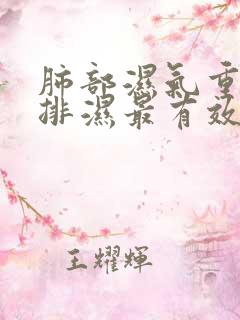 肺部濕氣重
排濕最有效
王耀輝